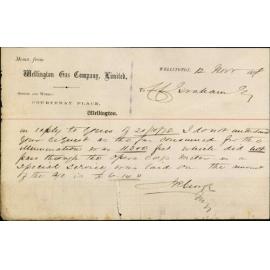 Memo. from
Wellington Gas Company, Limited,
OFFICES AND WORKS:
COURTENAY PLACE,
Wellington.
WELLINGTON, 12 Novr 18
To Graham Esq
In reply to yours of I do not understand
your request as the gas consumed for the
illumination was 11,300 feet which did not
pass through the Opera House Meter as a
special service was laid on the amount
of the a/c is £ 6-14-